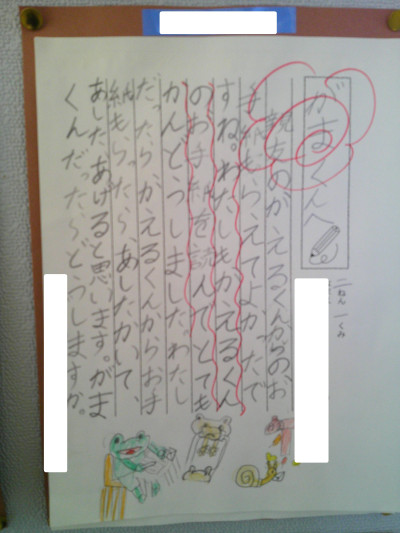 二ねん 一くみ
がまくんへ
親友のかえるくんからのお
手紙もらえてよかったで
すね。わたしもかえるくん
のお手紙を読んでとても
かんどうしました。わたし
だったらかえるくんからお手
紙もらったら、あしたかいて、
あしたあげると思います。がま
くんだったらどうしますか。